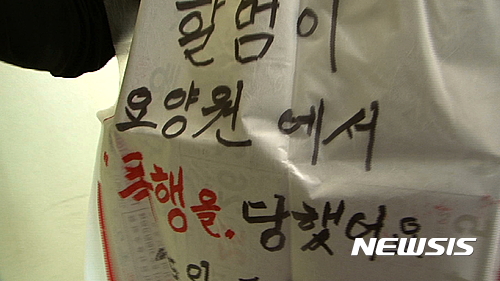 할멈이
요양원에서
"폭행을. 당했어요
NEWSIS